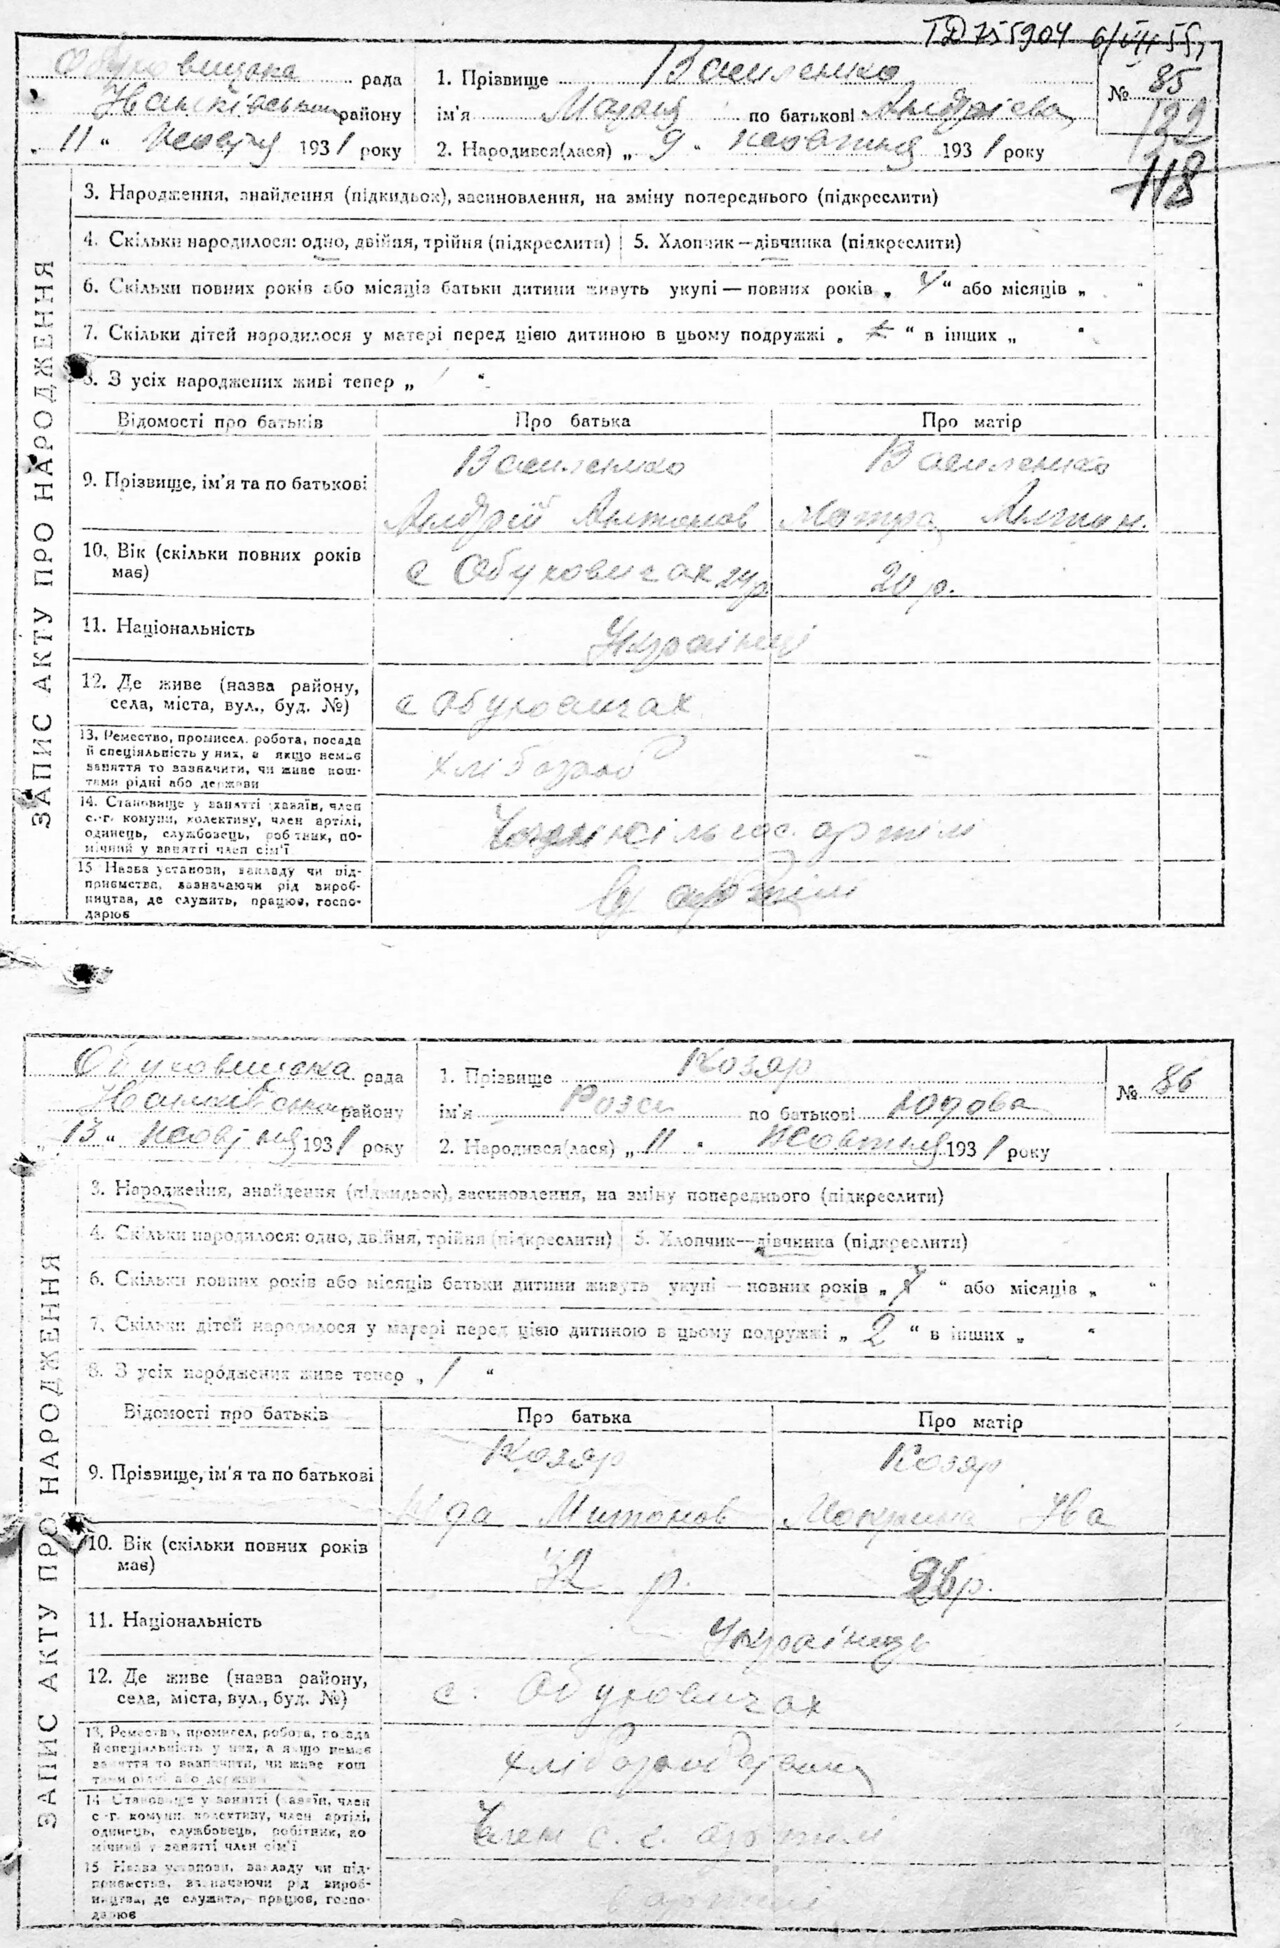 ТД 755904 6/VII 55 р
Обуховицька рада
Іванківського району
„ 11 “ жовтня 1931 року
1. Прізвище Василенко
ім'я Марія по батькові Андрієва
2. Народився(лася) „ 9 “ жовтня 1931 року
№ 85
122
118
3. Народження, знайдення (підкидьок), засиновлення, на зміну попереднього (підкреслити)
4. Скільки народилося: одно, двійня, трійня (підкреслити) 5. Хлопчик—дівчинка (підкреслити)
6. Скільки повних років або місяців батьки дитини живуть укупі — повних років „ “ або місяців „ “
7. Скільки дітей народилося у матері перед цією дитиною в цьому подружжі „ “ в інших „ “
8. З усіх народжених живі тепер „ “
ЗАПИС АКТУ ПРО НАРОДЖЕННЯ
Відомості про батьків Про батька Про матір
9. Прізвище, ім'я та по батькові
Василенко Василенко
Андрій Антонов Мотря
10. Вік (скільки повних років має)
с Обуховичах 24 р. 20 р.
11. Національність Українці
12. Де живе (назва району,
села, міста, вул., буд. №) с Обуховичах
13. Ремество, промисел, робота, посада
й спеціяльність у них, а якщо немає
заняття то зазначити, чи живе кош-
тами рідні або держави
хлібороб –
14. Становище у занятті (хазяїн, член
с.-г. комуни, колективу, член артілі,
одинець, службовець, робітник, по-
мічний у занятті член сім'ї
Члени сільгос. артілі
15 Назва установи, закладу чи під-
приємства, зазначаючи рід вироб-
ництва, де служить, працює, госпо-
дарює
В артілі
Обуховицька рада
Іванківського району
„ 13 “ жовтня 1931 року
1. Прізвище Козяр
ім'я по батькові Юдова
2. Народився(лася) „ 11 “ жовтня 1931 року
№ 86
3. Народження, знайдення (підкидьок), засиновлення, на зміну попереднього (підкреслити)
4. Скільки народилося: одно, двійня, трійня (підкреслити) 5. Хлопчик—дівчинка (підкреслити)
6. Скільки повних років або місяців батьки дитини живуть укупі — повних років „ 7 “ або місяців „ “
7. Скільки дітей народилося у матері перед цією дитиною в цьому подружжі „ 2 “ в інших „ “
8. З усіх народжених живе тепер „ 1 “
ЗАПИС АКТУ ПРО НАРОДЖЕННЯ
Відомості про батьків Про батька Про матір
9. Прізвище, ім'я та по батькові
Козяр Козяр
Юда Митонов Мокрина Іва
10. Вік (скільки повних років має)
32 р. 26 р.
11. Національність Українці
12. Де живе (назва району,
села, міста, вул., буд. №) с. Обуховичах
13. Ремество, промисел, робота, посада
й спеціяльність у них, а якщо немає
заняття то зазначити, чи живе кош
тами рідні або держави
14 Становище у занятті (хазяїн, член
с.-г. комуни, колективу, член артілі,
одинець, службовець, робітник, по
мічний у занятті член сім'ї
Член с. г. артілі
15 Назва установи, закладу чи під-
приємства, зазначаючи рід вироб-
ництва, де служить, працює, госпо-
дарює
В артілі